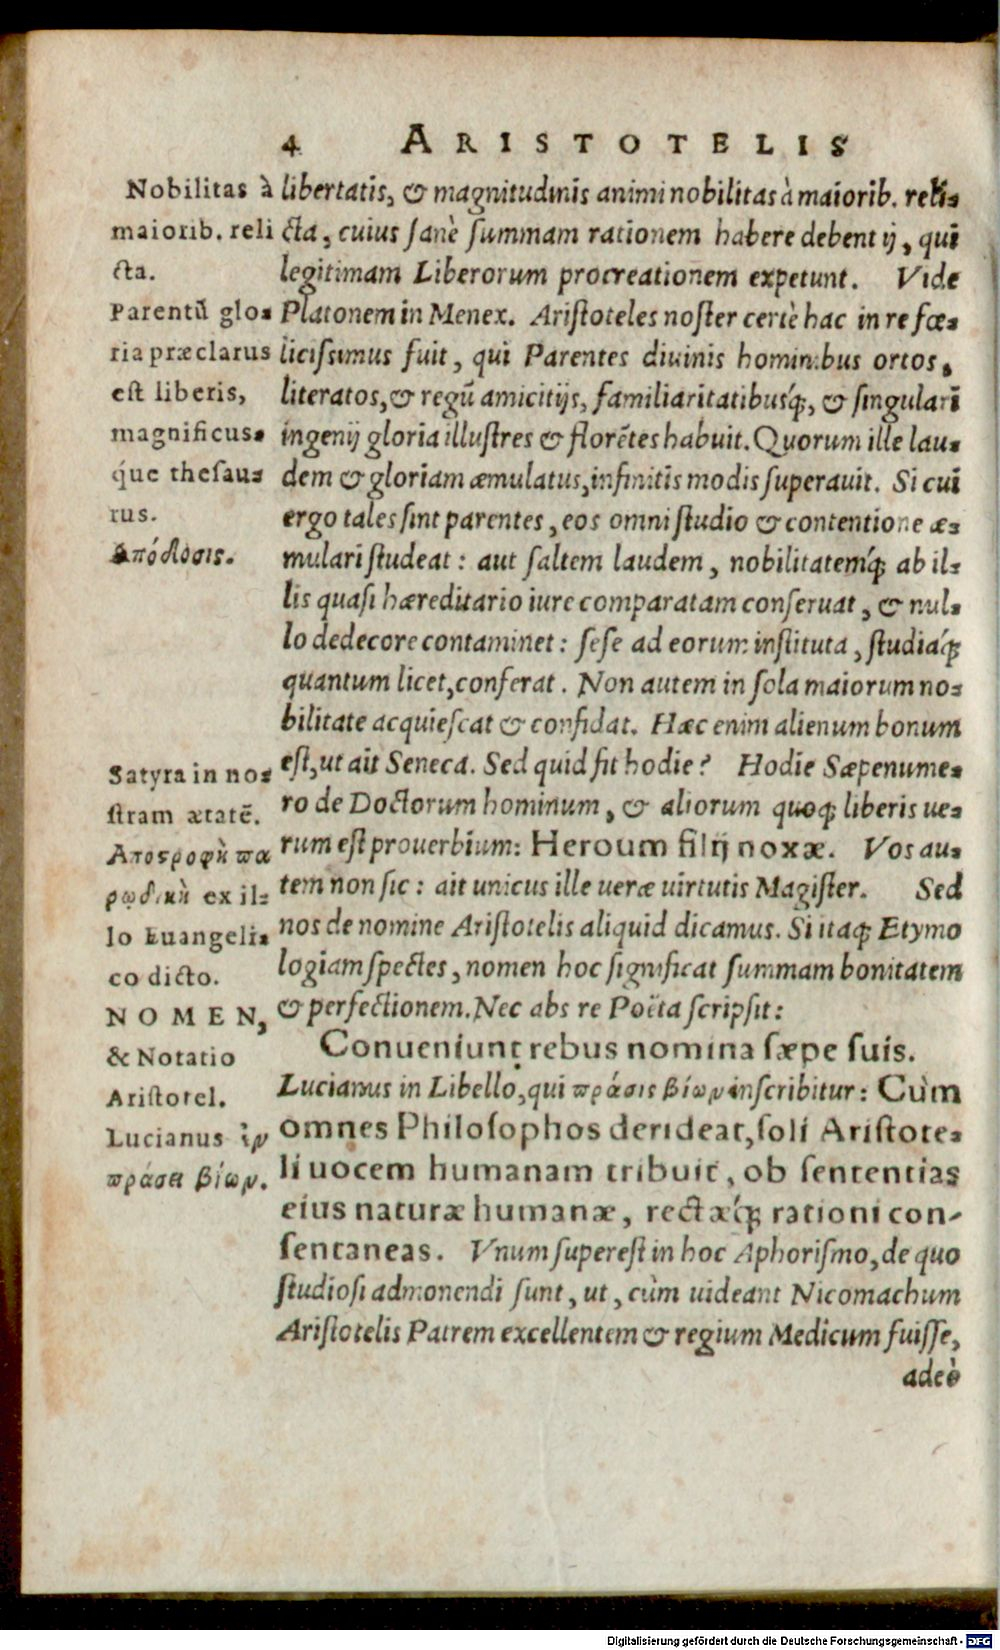 4 ARISTOTELIS
Nobilitas à
maiorib. reli
cta.
Parentū glo-
ria præclarus
est liberis,
magnificus-
q́ue thesau-
rus.
ἀπόδοσις.
Satyra in no-
stram ætatē.
Αποςροφὴ πα
ρῳδικὴ ex il-
lo Euangeli-
co dicto.
NOMEN,
& Notatio
Aristotel.
Lucianus ἐν
πράσει βίων.
libertatis, & magnitudinis animi nobilitas à maiorib. reli-
cta, cuius sanè summam rationem habere debent ij, qui
legitimam Liberorum procreationem expetunt. Vide
Platonem in Menex. Aristoteles noster certè hac in re fœ-
licissimus fuit, qui Parentes diuinis hominibus ortos,
literatos, & regū amicitijs, familiaritatibusq́;, & singulari
ingenij gloria illustres & florētes habuit. Quorum ille lau-
dem & gloriam æmulatus, infinitis modis superauit. Si cui
ergo tales sint parentes, eos omni studio & contentione æ-
mulari studeat: aut saltem laudem, nobilitatemq́; ab il-
lis quasi hæreditario iure comparatam conseruat, & nul-
lo dedecore contaminet: sese ad eorum instituta, studiaq́;
quantum licet, conferat. Non autem in sola maiorum no-
bilitate acquiescat & confidat. Hæc enim alienum bonum
est, ut ait Seneca. Sed quid fit hodie? Hodie Sæpenume-
ro de Doctorum hominum, & aliorum quoq; liberis ue-
rum est prouerbium: Heroum filij noxæ. Vos au-
tem non sic: ait unicus ille ueræ uirtutis Magister. Sed
nos de nomine Aristotelis aliquid dicamus. Si itaq; Etymo
logiam spectes, nomen hoc significat summam bonitatem
& perfectionem. Nec abs re Poëta scripsit:
Conueniunt rebus nomina sæpe suis.
Lucianus in Libello, qui πράσις βίων inscribitur: Cùm
omnes Philosophos derideat, soli Aristote-
li uocem humanam tribuit, ob sententias
eius naturæ humanæ, rectæq́; rationi con-
sentaneas. Vnum superest in hoc Aphorismo, de quo
studiosi admonendi sunt, ut, cùm uideant Nicomachum
Aristotelis Patrem excellentem & regium Medicum fuisse,
adeò
Digitalisierung gefördert durch die Deutsche Forschungsgemeinschaft - DFG